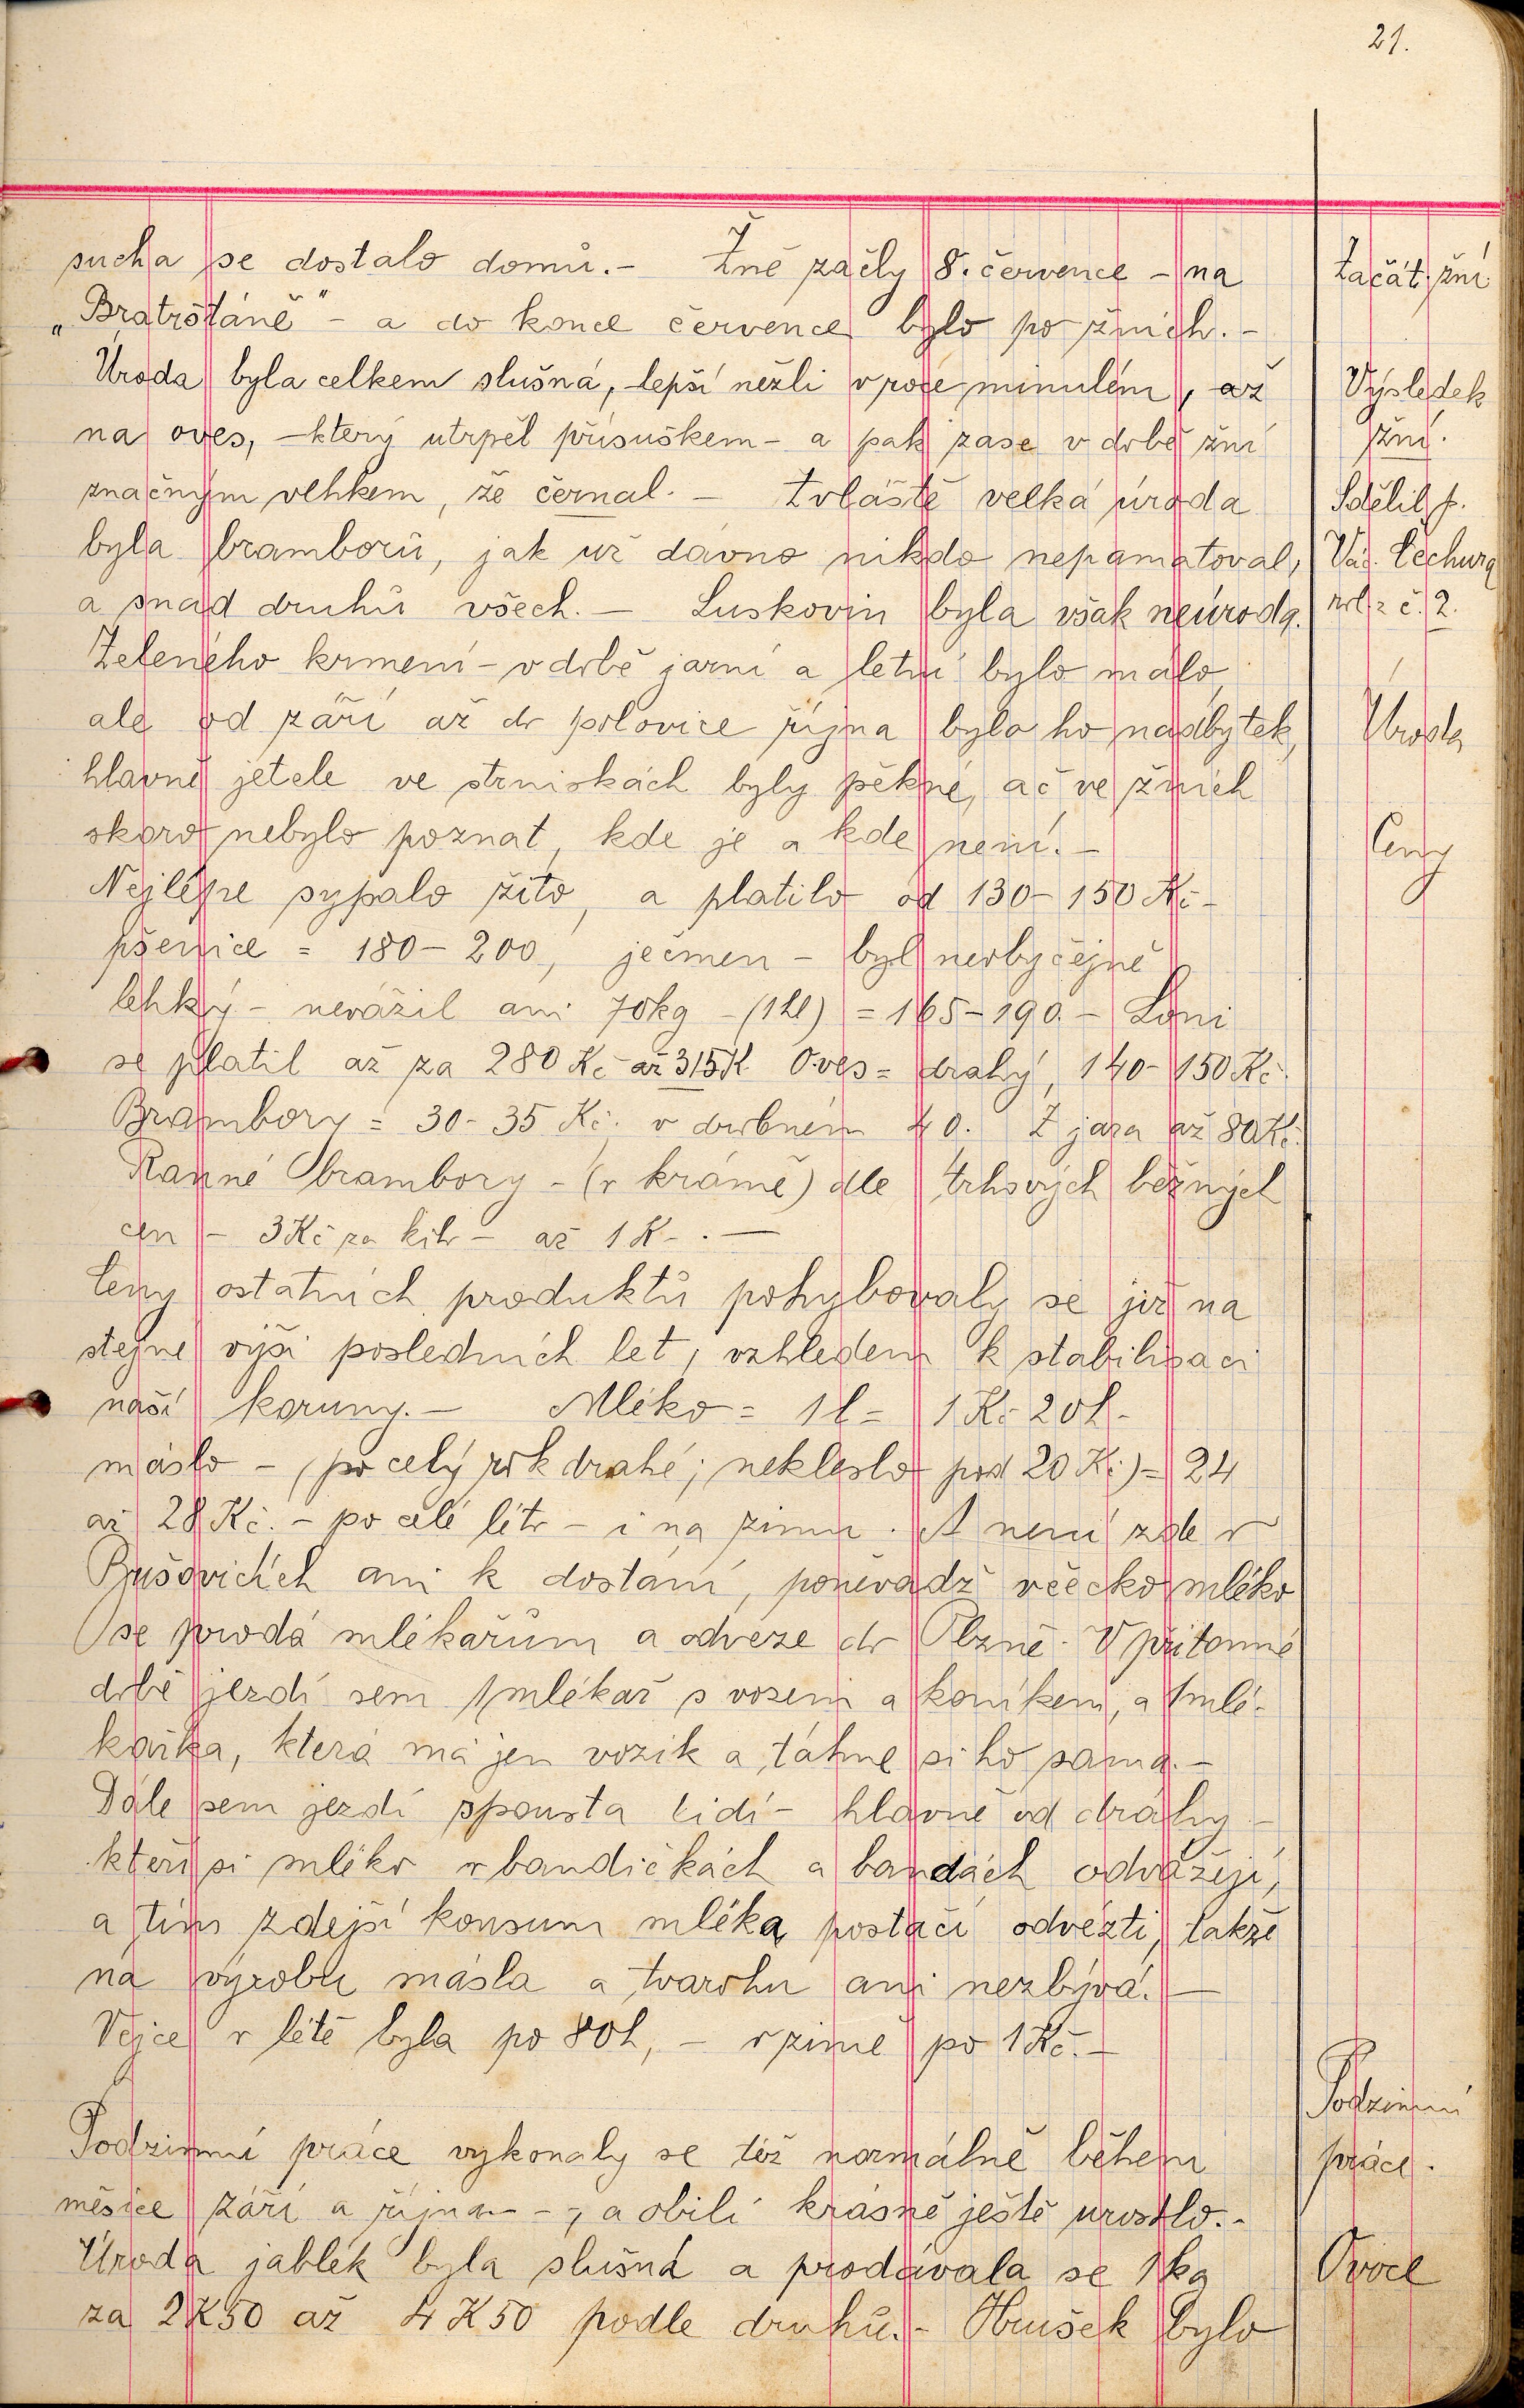 21.
sucha se dostalo domů.- Žně začly 8. července - na
„Bratrštáně" - a do konce července bylo po žních.-
Úroda byla celkem slušná, lepší nežli v roce minulém, až
na oves, - který utrpěl přísuškem - a pak zase v době žní
značným vlhkem, že černal. - Zvláště velká úroda
byla bramborů, jak už dávno nikdo nepamatoval,
a snad druhů všech. - Luskovin byla však neúroda.
Zeleného krmení - v době jarní a letní bylo málo,
ale od září až do polovice října bylo ho nadbytek,
hlavně jetele ve strniskách byly pěkné, ač ve žních
skoro nebylo poznat, kde je a kde není. -
Nejlépe sypalo žito, a platilo od 130 - 150 Kč -
pšenice = 180 - 200, ječmen - byl neobyčejně
lehký - nevážil ani 70kg - (1hl) = 165 - 190. - Loni
se platil až za 280 Kč až 315K. Oves = drahý, 140 - 150 Kč.
Brambory = 30 - 35 Kč. v drobném 40. Z jara až 80 Kč.
Ranné brambory - (v krámě) dle trhových běžných
cen - 3 Kč za kilo - až 1 K - . -
Ceny ostatních produktů pohybovaly se již na
stejné výši posledních let, vzhledem k stabilisaci
naší koruny. - Mléko = 1 l = 1 Kč 20h -
máslo - (po celý rok drahé; nekleslo pod 20 Kč) = 24
až 28 Kč. - po celé léto - i na zimu. A není zde v
Bušovicích ani k dostání, poněvadž všecko mléko
se prodá mlékařům a odveze do Plzně. V přítomné
době jezdí sem 1 mlékař s vozem a koníkem, a 1 mlé-
kařka, která má jen vozík a táhne si ho sama. -
Dále sem jezdí spousta lidí - hlavně od dráhy -
kteří si mléko v bandičkách a bandách odvážejí,
a tím zdejší konsum mléka postačí odvézti, takže
na výrobu másla a tvarohu ani nezbývá. -
Vejce v létě byla po 80h, - v zimě po 1 Kč. -
Podzimní práce vykonaly se též normálně během
měsíce září a října - -, a obilí krásně ještě urostlo. -
Úroda jablek byla slušná a prodávala se 1 kg
za 2K50 až 4K50 podle druhů. - Hrušek bylo
Začát. žní
Výsledek
žní.
Sdělil p.
Vác. Čechura
rol. z č. 2.
Úroda
Ceny
Podzimní
práce.
Ovoce